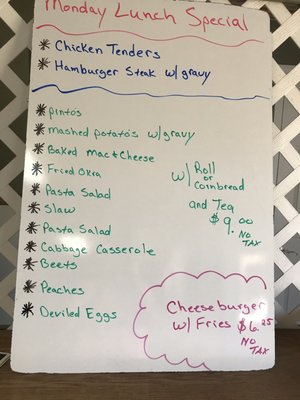 Monday Lunch Special
* Chicken Tenders
* Hamburger Steak w/ gravy
* pintos
* mashed potato's w/gravy
* Baked Mac & Cheese
* Fried Okra
* Pasta Salad
* Slaw
* Pasta Salad
* Cabbage Casserole
* Beets
* Peaches
* Deviled Eggs
w/ Roll
or
Cornbread
and Tea
$9.00
NO
TAX
Cheeseburger
w/ Fries $6.25
NO
TAX